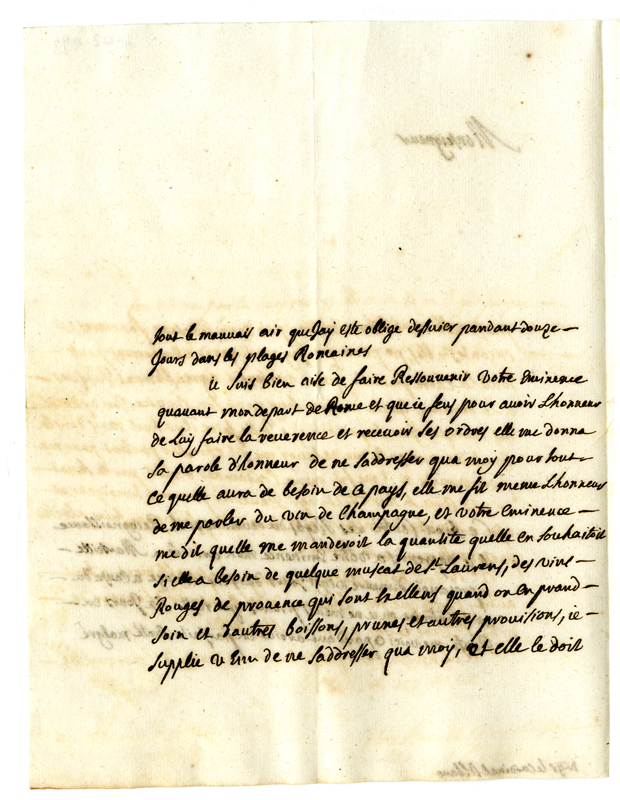 tout le mauvais air que Jay esté obligé dessuier pandant douze
Jours dans les plages Romaines
ie suis bien aise de faire Ressouvenir votre Eminence
quavant mon depart de Rome et que ie feus pour avoir Lhonneur
de Luy faire la reverence et recevoir ses ordres elle me donna
sa parole d'honneur de ne saddresser qua moy pour tout
ce quelle aura de besoin de ce pays, elle me fit meme Lhonneur
de me parler du vin de Champagne, et votre Eminence
me dit quelle me manderoit la quantité quelle en souhaitoit
si elle a besoin de quelque muscat de St Laurens, des vins
Rouges de provence qui sont Exellens quand on en prand
soin et d'autres boissons, prunes et autres provisions, ie
supplie v Em de ne saddresser qua moy, et elle le doit